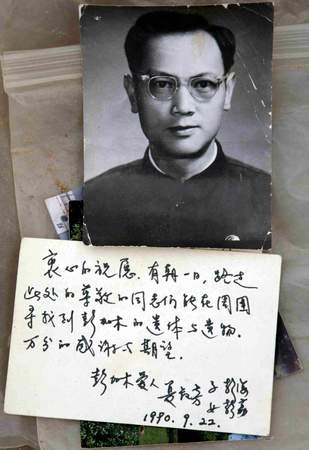 衷心的祝愿.有朝一日,路过
此处的尊敬的同志们能在周围
寻找到彭加木的遗体与遗物.
万分的感谢与期望.
彭加木爱人 夏叔芳 子 彭海
女 彭荔
1990.9.22.